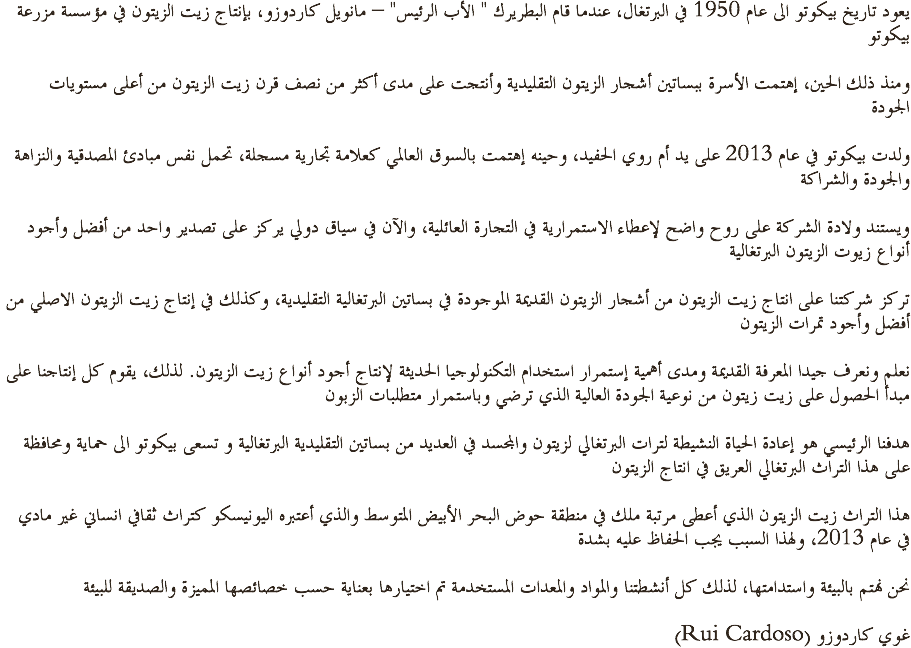 يعود تاريخ بيكوتو الى عام 1950 في البرتغال، عندما قام البطريرك " الأب الرئيس" – مانويل كاردوزو، بإنتاج زيت الزيتون في مؤسسة مزرعة
بيكوتو
ومنذ ذلك الحين، إهتمت الأسرة ببساتين أشجار الزيتون التقليدية وأنتجت على مدى أكثر من نصف قرن زيت الزيتون من أعلى مستويات
الجودة
ولدت بيكوتو في عام 2013 على يد أم روي الحفيد، وحينه إهتمت بالسوق العالمي كعلامة تجارية مسجلة، تحمل نفس مبادئ المصدقية والنزاهة
والجودة والشراكة
ويستند ولادة الشركة على روح واضح لإعطاء الاستمرارية في التجارة العائلية، والآن في سياق دولي يركز على تصدير واحد من أفضل وأجود
أنواع زيوت الزيتون البرتغالية
تركز شركتنا على انتاج زيت الزيتون من أشجار الزيتون القديمة الموجودة في بساتين البرتغالية التقليدية، وكذلك في إنتاج زيت الزيتون الاصلي من
أفضل وأجود ثمرات الزيتون
نعلم ونعرف جيدا المعرفة القديمة ومدى أهمية إستمرار استخدام التكنولوجيا الحديثة لإنتاج أجود أنواع زيت الزيتون. لذلك، يقوم كل إنتاجنا على
مبدأ الحصول على زيت زيتون من نوعية الجودة العالية الذي ترضي وباستمرار متطلبات الزبون
هدفنا الرئيسي هو إعادة الحياة النشيطة لتراث البرتغالي لزيتون والمجسد في العديد من بساتين التقليدية البرتغالية و تسعى بيكوتو الى حماية ومحافظة
على هذا التراث البرتغالي العريق في انتاج الزيتون
هذا التراث زيت الزيتون الذي أعطى مرتبة ملك في منطقة حوض البحر الأبيض المتوسط والذي أعتبره اليونيسكو كتراث ثقافي انساني غير مادي
في عام 2013، ولهذا السبب يجب الحفاظ عليه بشدة
نحن نهتم بالبيئة واستدامتها، لذلك كل أنشطتنا والمواد والمعدات المستخدمة تم اختيارها بعناية حسب خصائصها المميزة والصديقة للبيئة
غوي كاردوزو (Rui Cardoso)